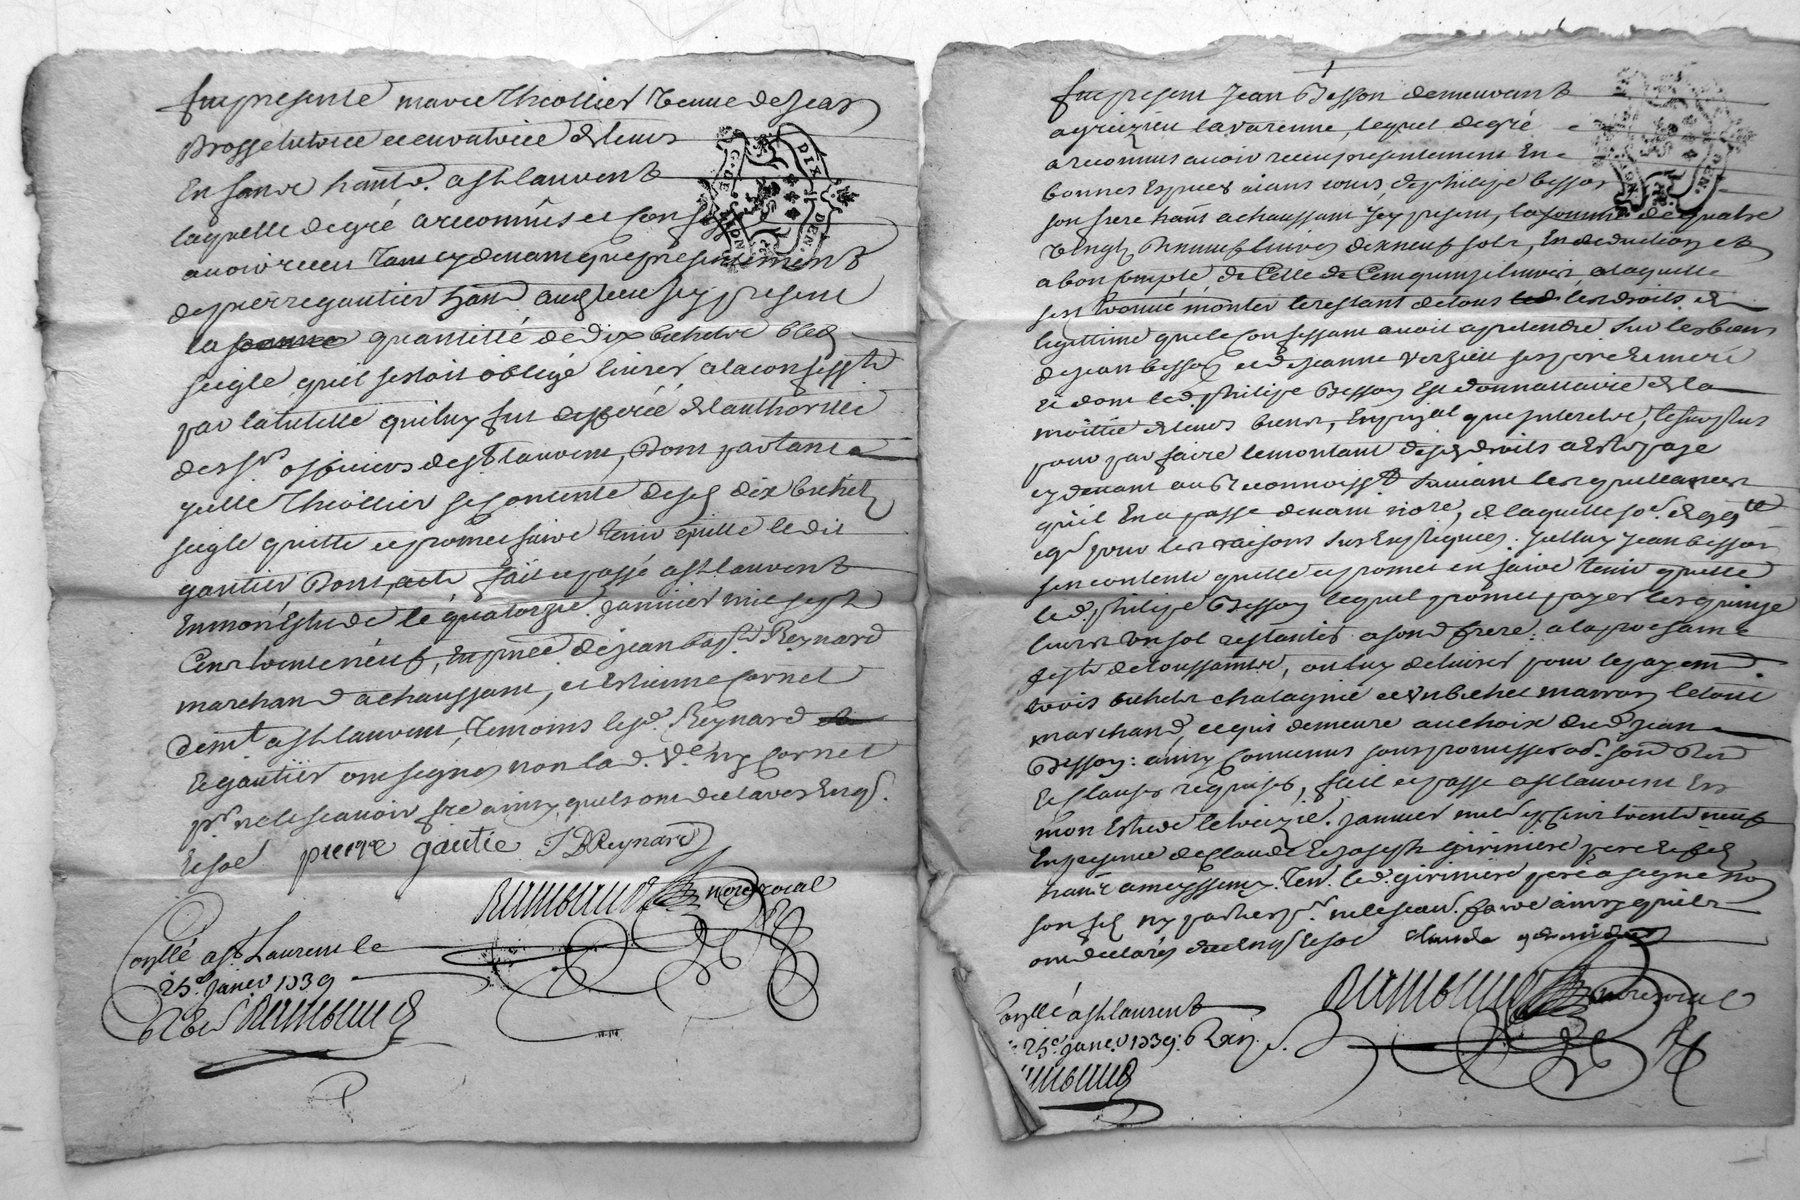 fut presente marie Thiollier veuve de Jean
Brosse tutrice et curatrice de leurs
Enfans habit. a St laurent
laquelle de gré a reconnus et confessé
avoir receu cy devant que presentement
de pierre gautier hant. au dt lieu icy present
la somme quantitté de dix bichets bled
seigle quil sestoit obligé livrer a la confesste
par la tutelle qui luy fut defferée de lauthoritté
des srs officiers de St laurent, Dont partant
yelle Thiollier se contente des dt dix bichets
seigle quitte et promet faire tenir quitte le dit
gautier Dont acte fait et passé a St laurent
En mon Estude le quatorze. janvier mil sept
Cens trente neuf, En pnce de jean bapt. Reynard
marchand a chaussant, et Estienne Cornet
demt a St laurent, Temoins le sr. Reynard
Et gautier ont signé non la d. Ve. ny Cornet
pr ne le scavoir fre ainsy quils ont declarés Enqs.
Et soé pierre gautie J B Reynard
Rimbaud nore royal
Conllé a St Laurent le
25e Janer 1739
Rimbaud
DIX DEN.
fut present Jean Besson demeurant
a grézieu la varenne, lequel de gré
a reconnus avoir receu presentement En
bonnes Espuces aiant cours de philipe besson
son frere hant a chaussant icy present, la somme de quatre
vingts dixneuf livres dixneuf sols, En deduction et
a bon compte de Celle de Cent quinze livres a laquelle
sest trouvé monter le restant de tous les droits de
legittime que le confessant avoit a pretendre sur les biens
de jean besson et de jeanne Verzieu ses pere et mere
et dont led. philipe Besson Est donnattaire de la
moittié de leurs biens, En pnal que interets, le surplus
pour par faire le montant de ses droits a Esté paye
cy devant au Reconnoisst. suivant les quittances
quil En a passé devant nore, de laquelle se. de 99 ll
19s pour les raisons sus Expliquées. yelluy jean besson
se contente quitte et promet en faire tenir quitte
led. philipe Besson lequel promet payer les quinze
livres un sol restantes a son d. frere a la prochaine
feste de toussaints, ou luy delivrer pour le payemt
trois bichets chatagnie et un bichet marron le tout
marchand, et quis demeure au choix dud. Jean
Besson: ainsy Convenus sous promesses obl.
Et clauses requises, fait et passé a St laurent En
mon Estude le treizie. janvier mil sept Cens trente neuf
En presence de claude Et Joseph giriniere pere Et fils
hants a meyssemy. Tem. led. giriniere pere a signe non
son fils ny parties pr. ne le scavr. faire ainsy quils
ont declarés de ce Enqs Et soé Claude
Rimbaud nore royal
Conllé a St laurent
25e janer. 1739
Rimbaud